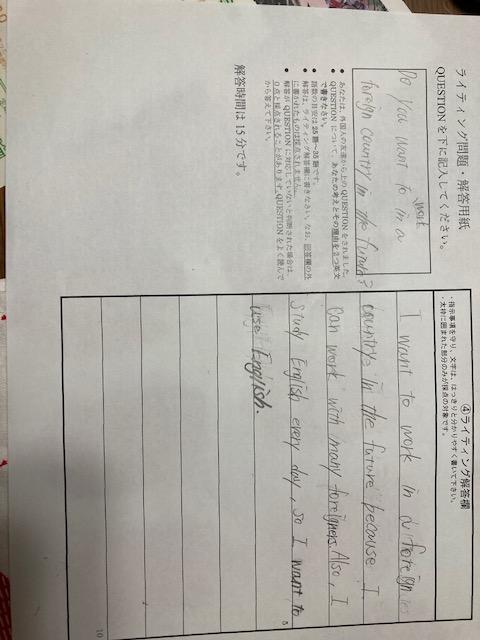 ライティング問題・解答用紙
QUESTION を下に記入してください。
work
Do you want to in a
foreign country in the future?
● あなたは、外国人の友達から上の QUESTION をされました。
● QUESTION について、あなたの考えとその理由を2つ英文
で書きなさい。
● 語数の目安は 25 語~35 語です。
● 解答は、ライティング解答欄に書きなさい。なお、解答欄の外
に書かれたものは採点されません。
● 解答が QUESTION に対応していないと判断された場合は、
0点と採点されることがあります。QUESTION をよく読んで
から答えて下さい。
解答時間は 15 分です。
④ライティング解答欄
・指示事項を守り、文字は、はっきりと分かりやすく書いて下さい。
・太枠に囲まれた部分のみが採点の対象です。
I want to work in a foreign
country in the future because I
can work with many foreigners. Also, I
study English every day, so I want to
use English.
5
10